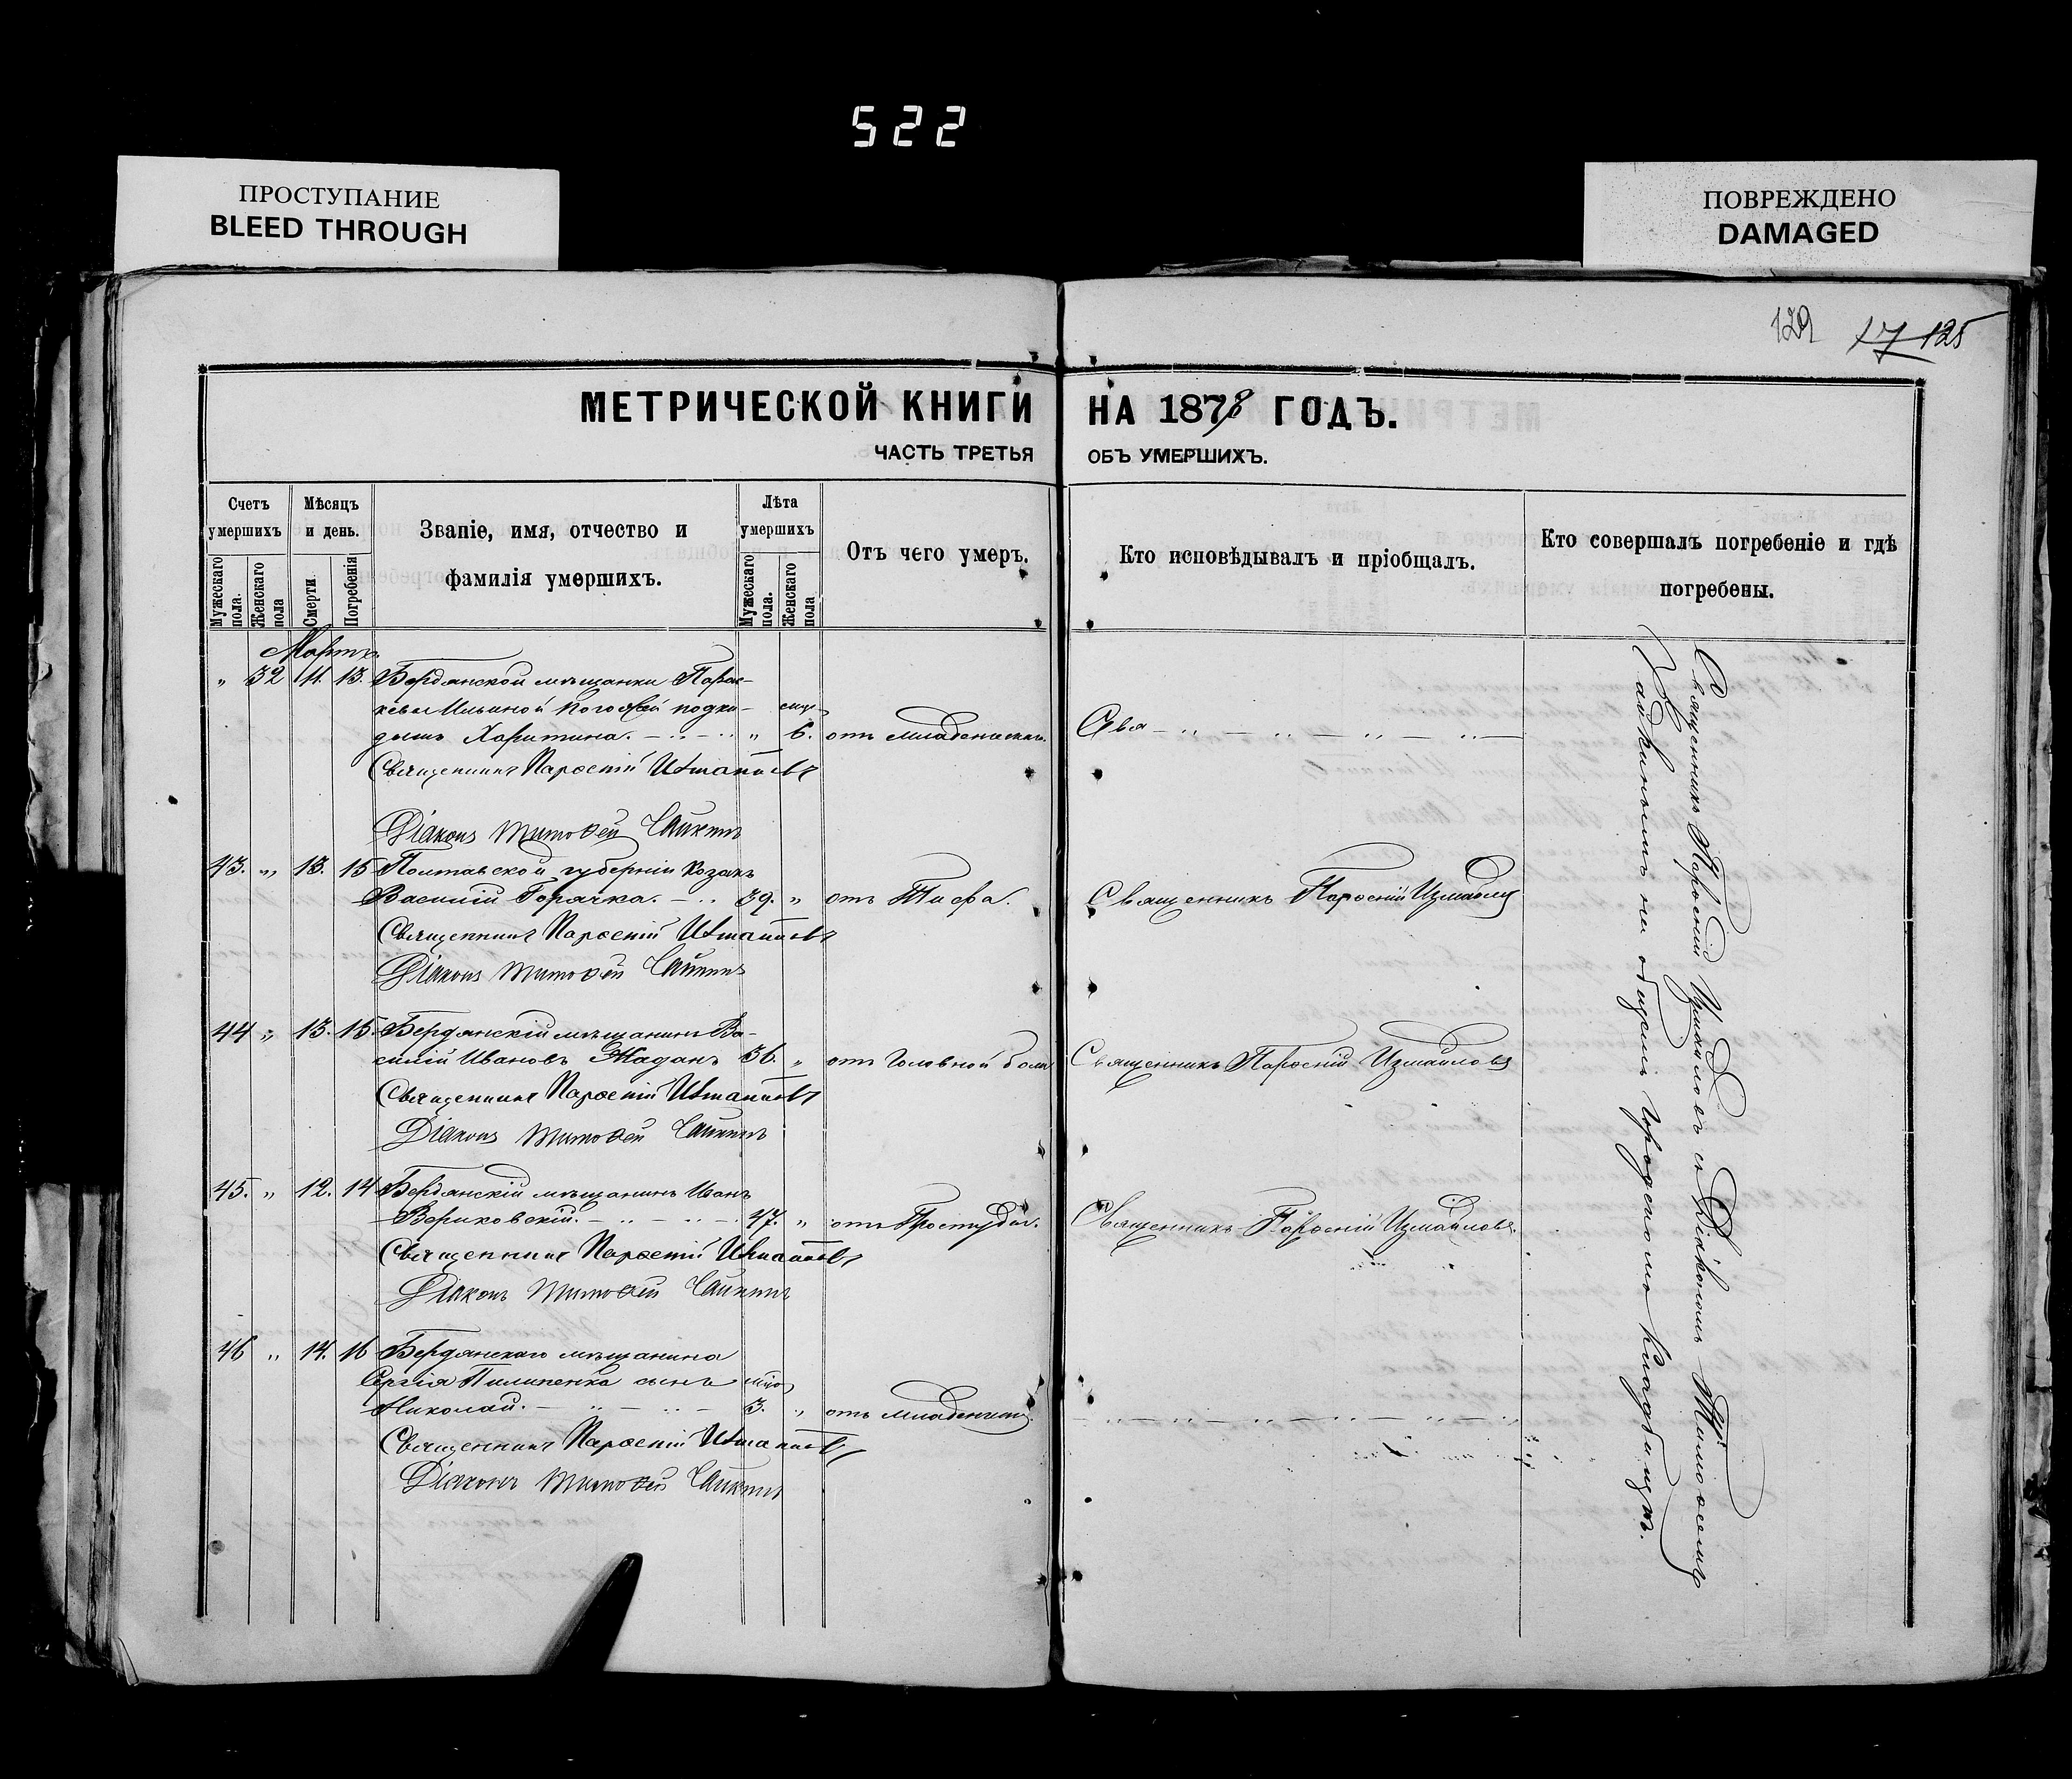 522
ПРОСТУПАНИЕ
BLEED THROUGH
ПОВРЕЖДЕНО
DAMAGED
129 17 125
МЕТРИЧЕСКОЙ КНИГИ НА 1878 ГОДЪ.
ЧАСТЬ ТРЕТЬЯ ОБЪ УМЕРШИХЪ.
Счетъ умершихъ
Мужескаго пола.
Женскаго пола
Мѣсяцъ и день.
Смерти
Погребенія
Званіе, имя, отчество и
фамилія умершихъ.
Лѣта умершихъ
Мужескаго пола.
Женскаго пола
Отъ чего умеръ.
Кто исповѣдывалъ и пріобщалъ.
Кто совершалъ погребеніе и гдѣ
погребены.
Мартъ
" 32 11. 13. Бердянской мѣщанки Парас-
кевы Ильиной подки-
дышъ Харитина. " 6. отъ младенческ.
Священникъ Парѳеній Измаиловъ
Діаконъ Тимоѳей Чайкинъ
43. " 13. 15 Полтавской губерніи Козакъ
Василій Горячка. 39. " отъ Тифа. Священникъ Парѳеній Измаиловъ
Священникъ Парѳеній Измаиловъ
Діаконъ Тимоѳей Чайкинъ
44 " 13. 15. Бердянскій мѣщанинъ Ва-
силій Ивановъ Жаданъ 36. " отъ Головной боли Священникъ Парѳеній Измаиловъ
Священникъ Парѳеній Измаиловъ
Діаконъ Тимоѳей Чайкинъ
45. " 12. 14 Бердянскій мѣщанинъ Иванъ
Вериковскій. 47. " отъ Простуды. Священникъ Парѳеній Измаиловъ.
Священникъ Парѳеній Измаиловъ
Діаконъ Тимоѳей Чайкинъ
46 " 14. 16 Бердянскаго мѣщанина
Сергія Пилипенка сынъ
Николай. 3. " отъ младенческ.
Священникъ Парѳеній Измаиловъ
Діаконъ Тимоѳей Чайкинъ
Священникъ Парѳеній Измаиловъ съ Діакономъ Тимоѳеемъ
Чайкинымъ на общемъ городскомъ кладбищѣ.